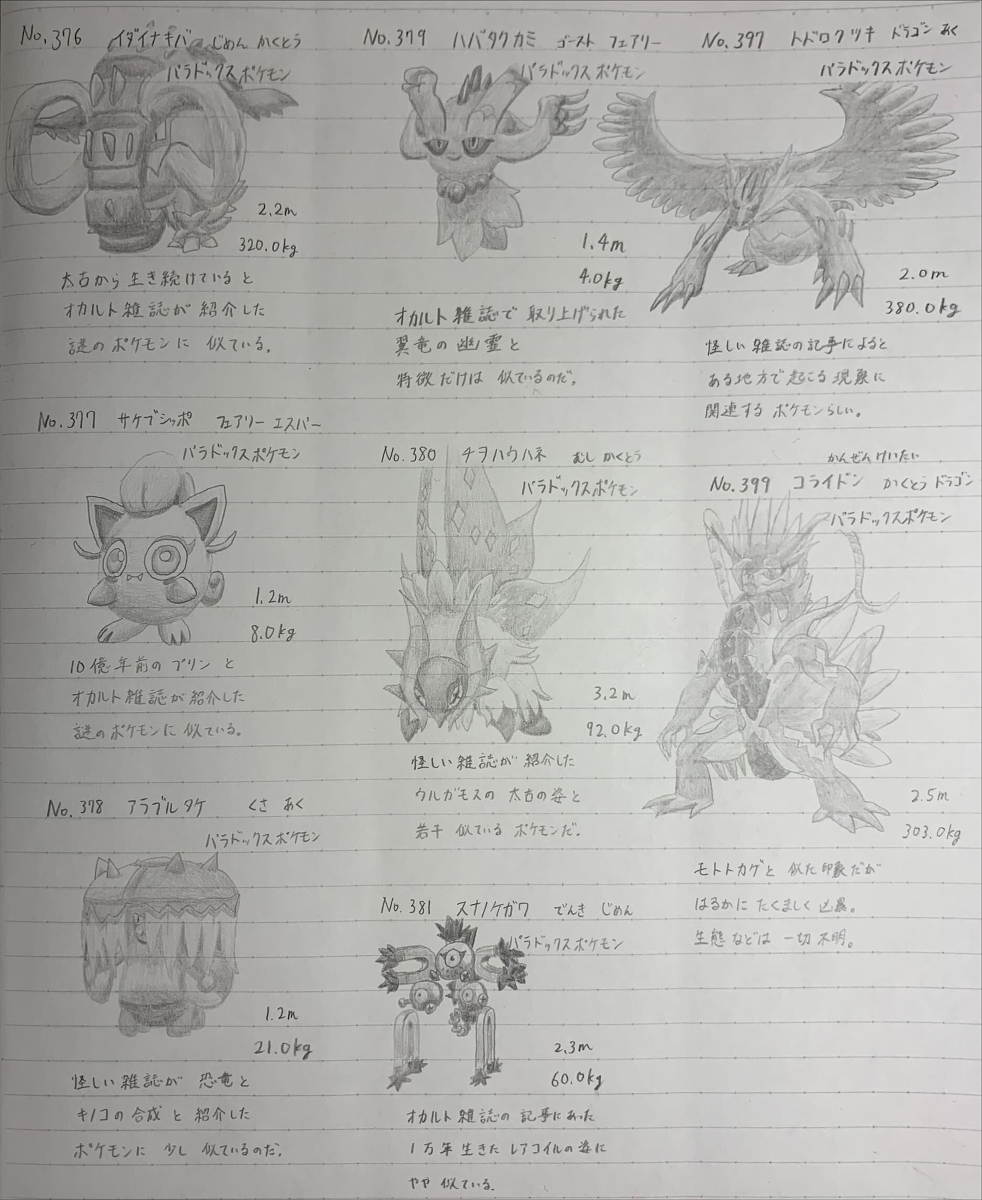 No.376 イダイナキバ じめん かくとう
パラドックスポケモン
2.2m
320.0kg
太古から 生き続けている と
オカルト雑誌が 紹介した
謎の ポケモンに 似ている。
No.377 サケブシッポ フェアリー エスパー
パラドックスポケモン
1.2m
8.0kg
10億年前の プリン と
オカルト雑誌が紹介した
謎の ポケモンに 似ている。
No.378 アラブルタケ くさ あく
パラドックスポケモン
1.2m
21.0kg
怪しい雑誌が 恐竜と
キノコの合成 と 紹介した
ポケモンに 少し 似ているのだ。
No.379 ハバタクカミ ゴースト フェアリー
パラドックスポケモン
1.4m
4.0kg
オカルト雑誌で 取り上げられた
翼竜の 幽霊と
特徴だけは 似ているのだ。
No.380 チヲハウハネ むし かくとう
パラドックスポケモン
3.2m
92.0kg
怪しい 雑誌が 紹介した
ウルガモスの 太古の姿と
若干 似ている ポケモンだ。
No.381 スナノケガワ でんき じめん
パラドックスポケモン
2.3m
60.0kg
オカルト雑誌の 記事にあった
1万年 生きた レアコイルの 姿に
やや 似ている。
No.397 トドロクツキ ドラゴン あく
パラドックスポケモン
2.0m
380.0kg
怪しい 雑誌の記事によると
ある地方で 起こる 現象に
関連する ポケモンらしい。
かんぜんけいたい
No.399 コライドン かくとう ドラゴン
パラドックスポケモン
2.5m
303.0kg
モトトカゲと 似た 印象だが
はるかに たくましく 凶暴。
生態などは 一切 不明。